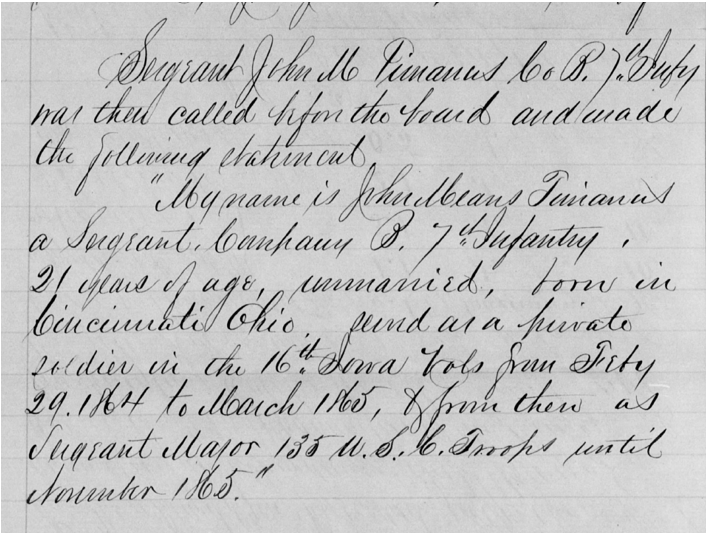 Sergeant John M Timanus Co B. 7th Infty
was then called before the board and made
the following statement,
"My name is John Means Timanus
a Sergeant. Company B. 7th Infantry,
21 years of age, unmarried, born in
Cincinnati Ohio, served as a private
soldier in the 16th Iowa Vols from Feby
29. 1864 to March 1865, & from then as
Sergeant Major 135 U.S.C. Troops until
November 1865."